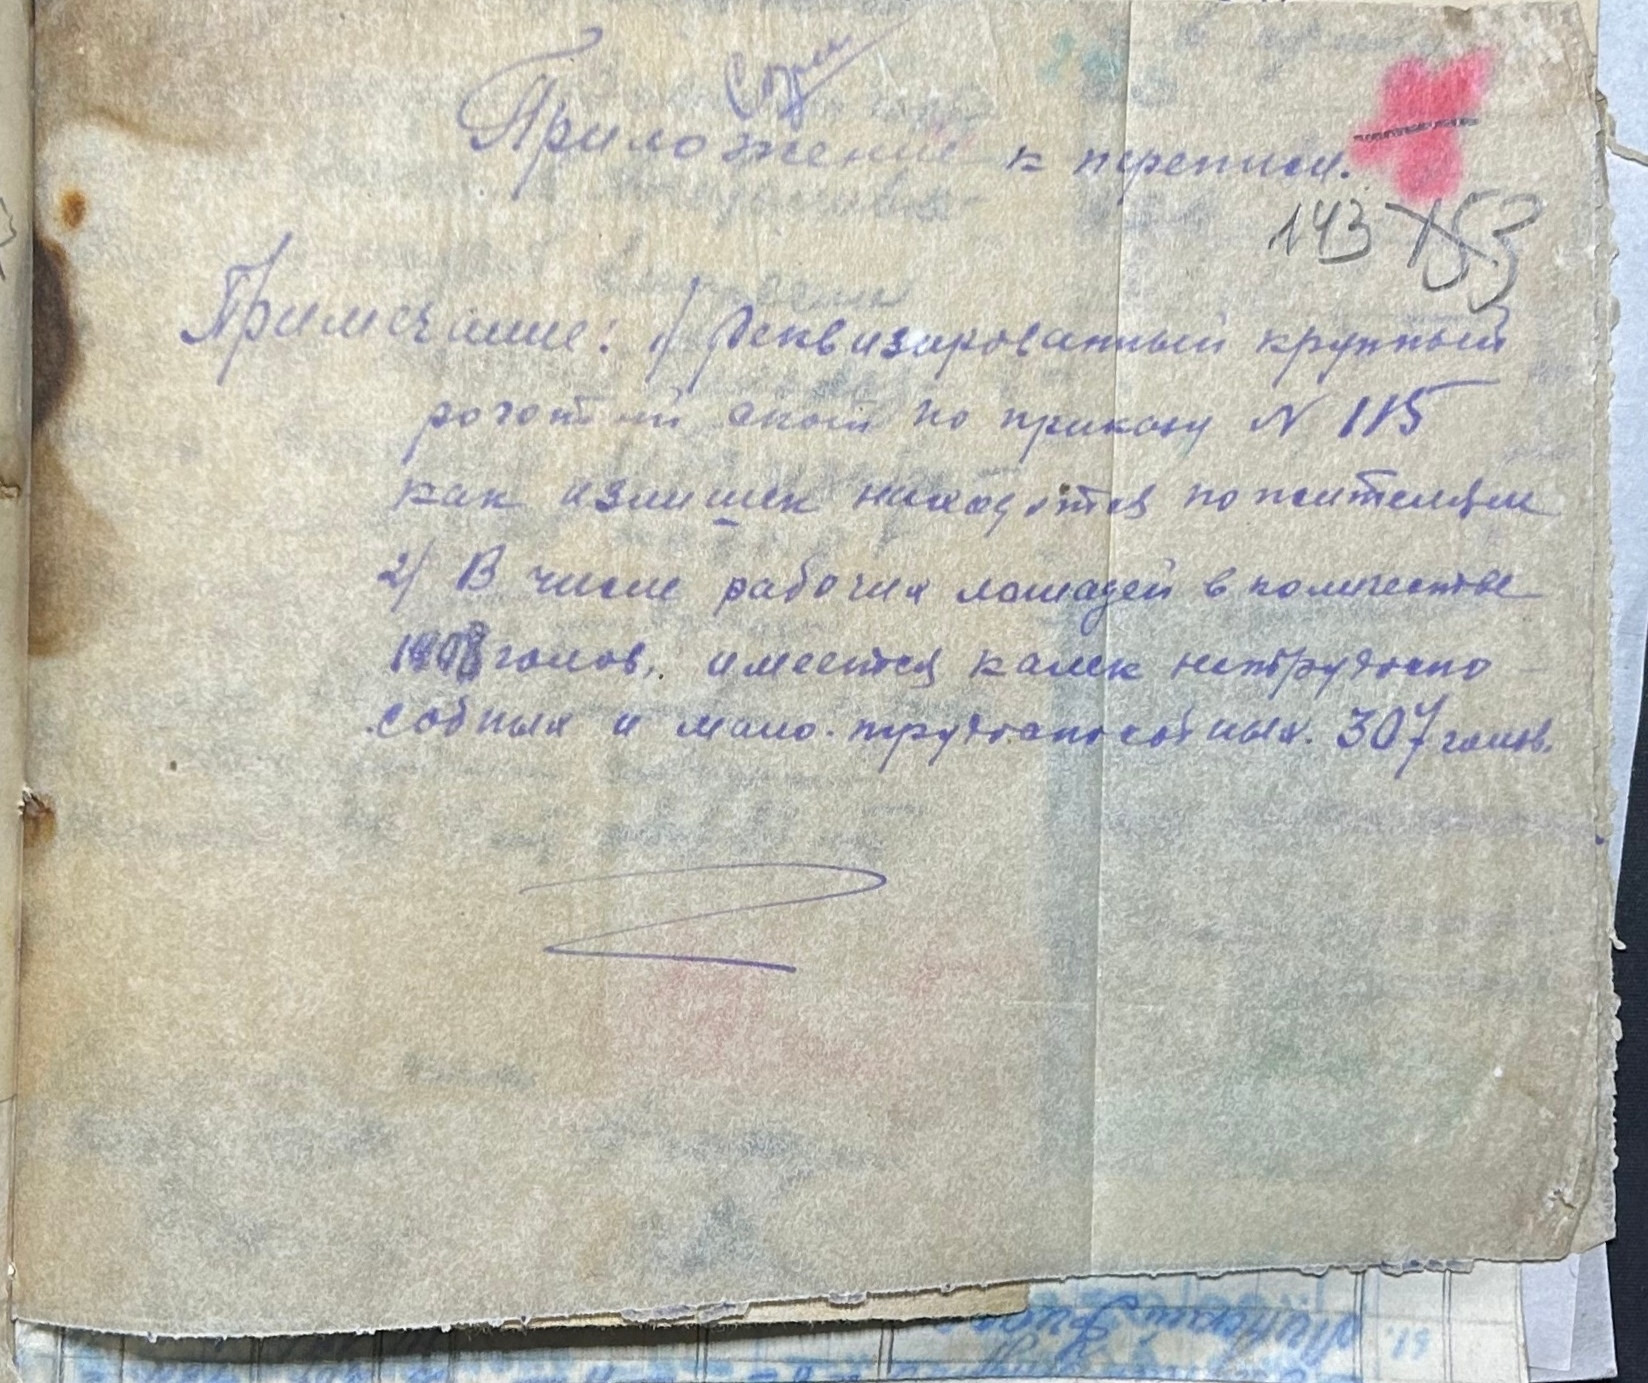 Приложение к переписи.
143 153
Примечание: 1/ Реквизированный крупный
рогатый скот по приказу N 115
как излишек находится по жителям
2/ В числе рабочих лошадей в количестве
голов, имеется калек нетрудоспо
собных и мало-трудоспособных. 307 голов.